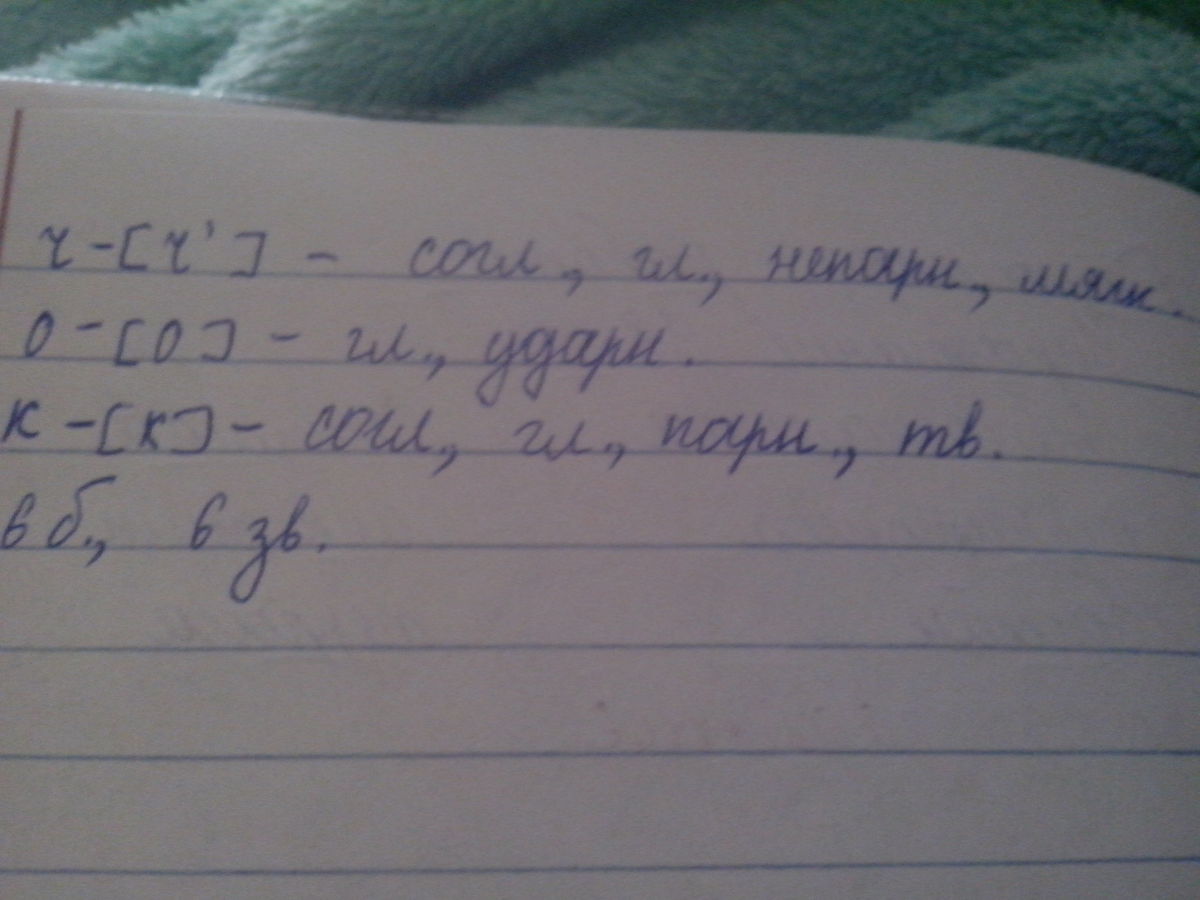 ч - [ч'] - согл., гл., непарн., мягк.
о - [о] - гл., ударн.
к - [к] - согл., гл., парн., тв.
6 б., 6 зв.